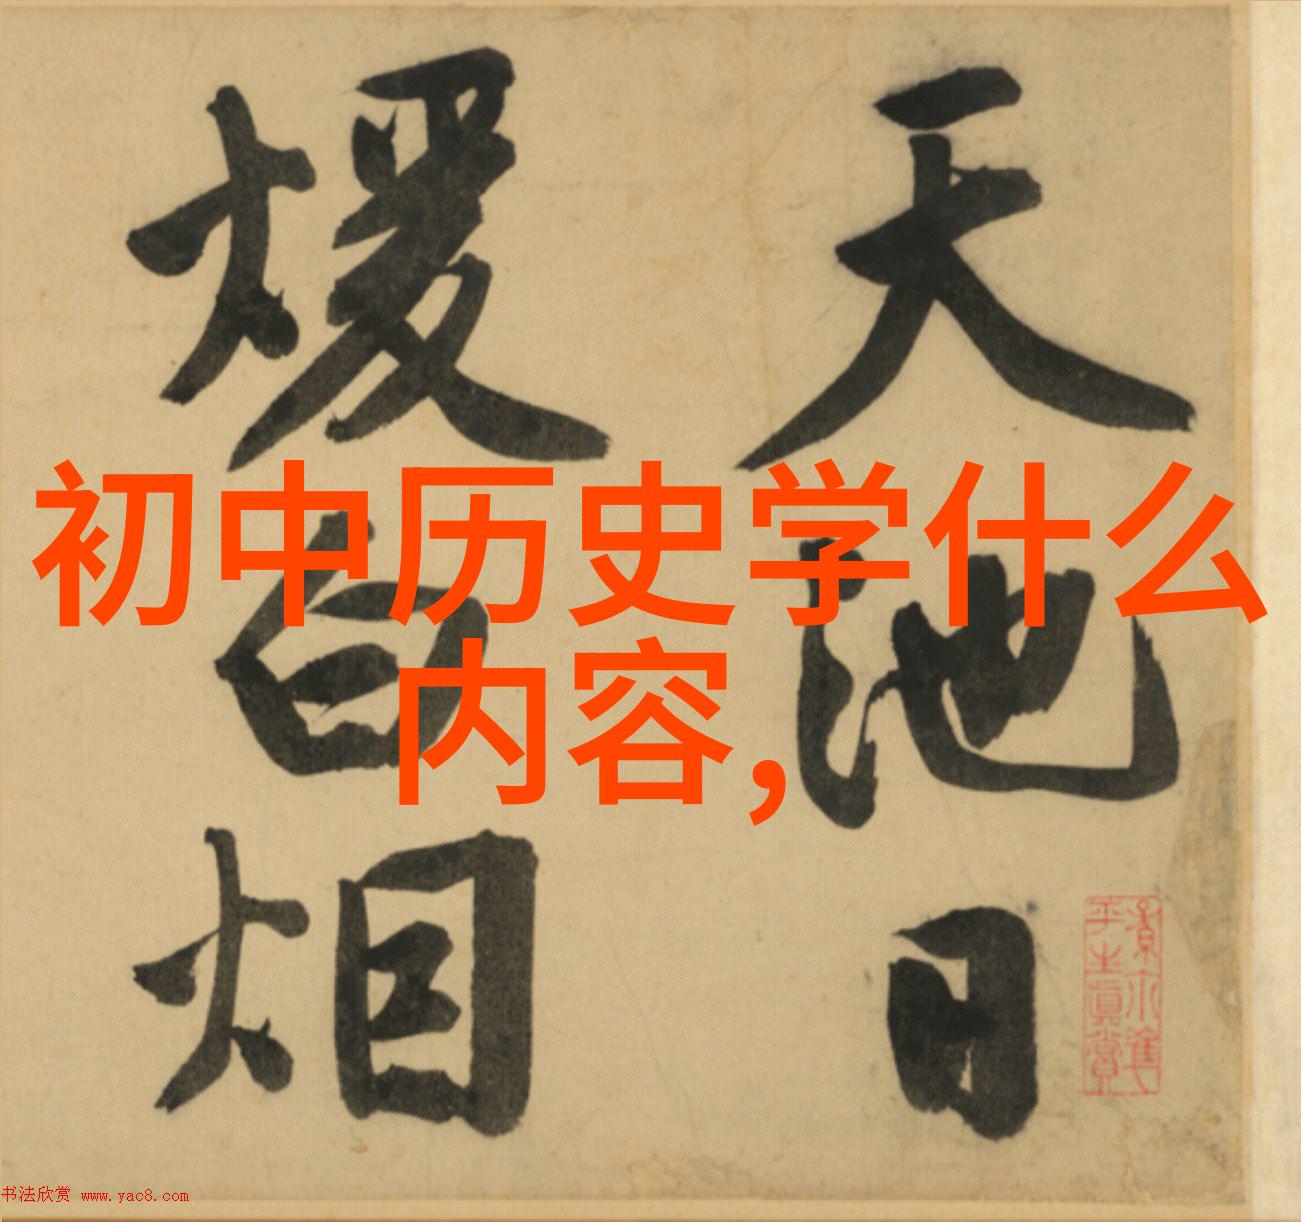 初中历史学什么
内容,
天池日
煖白烟
书法欣赏 www.yac8.com